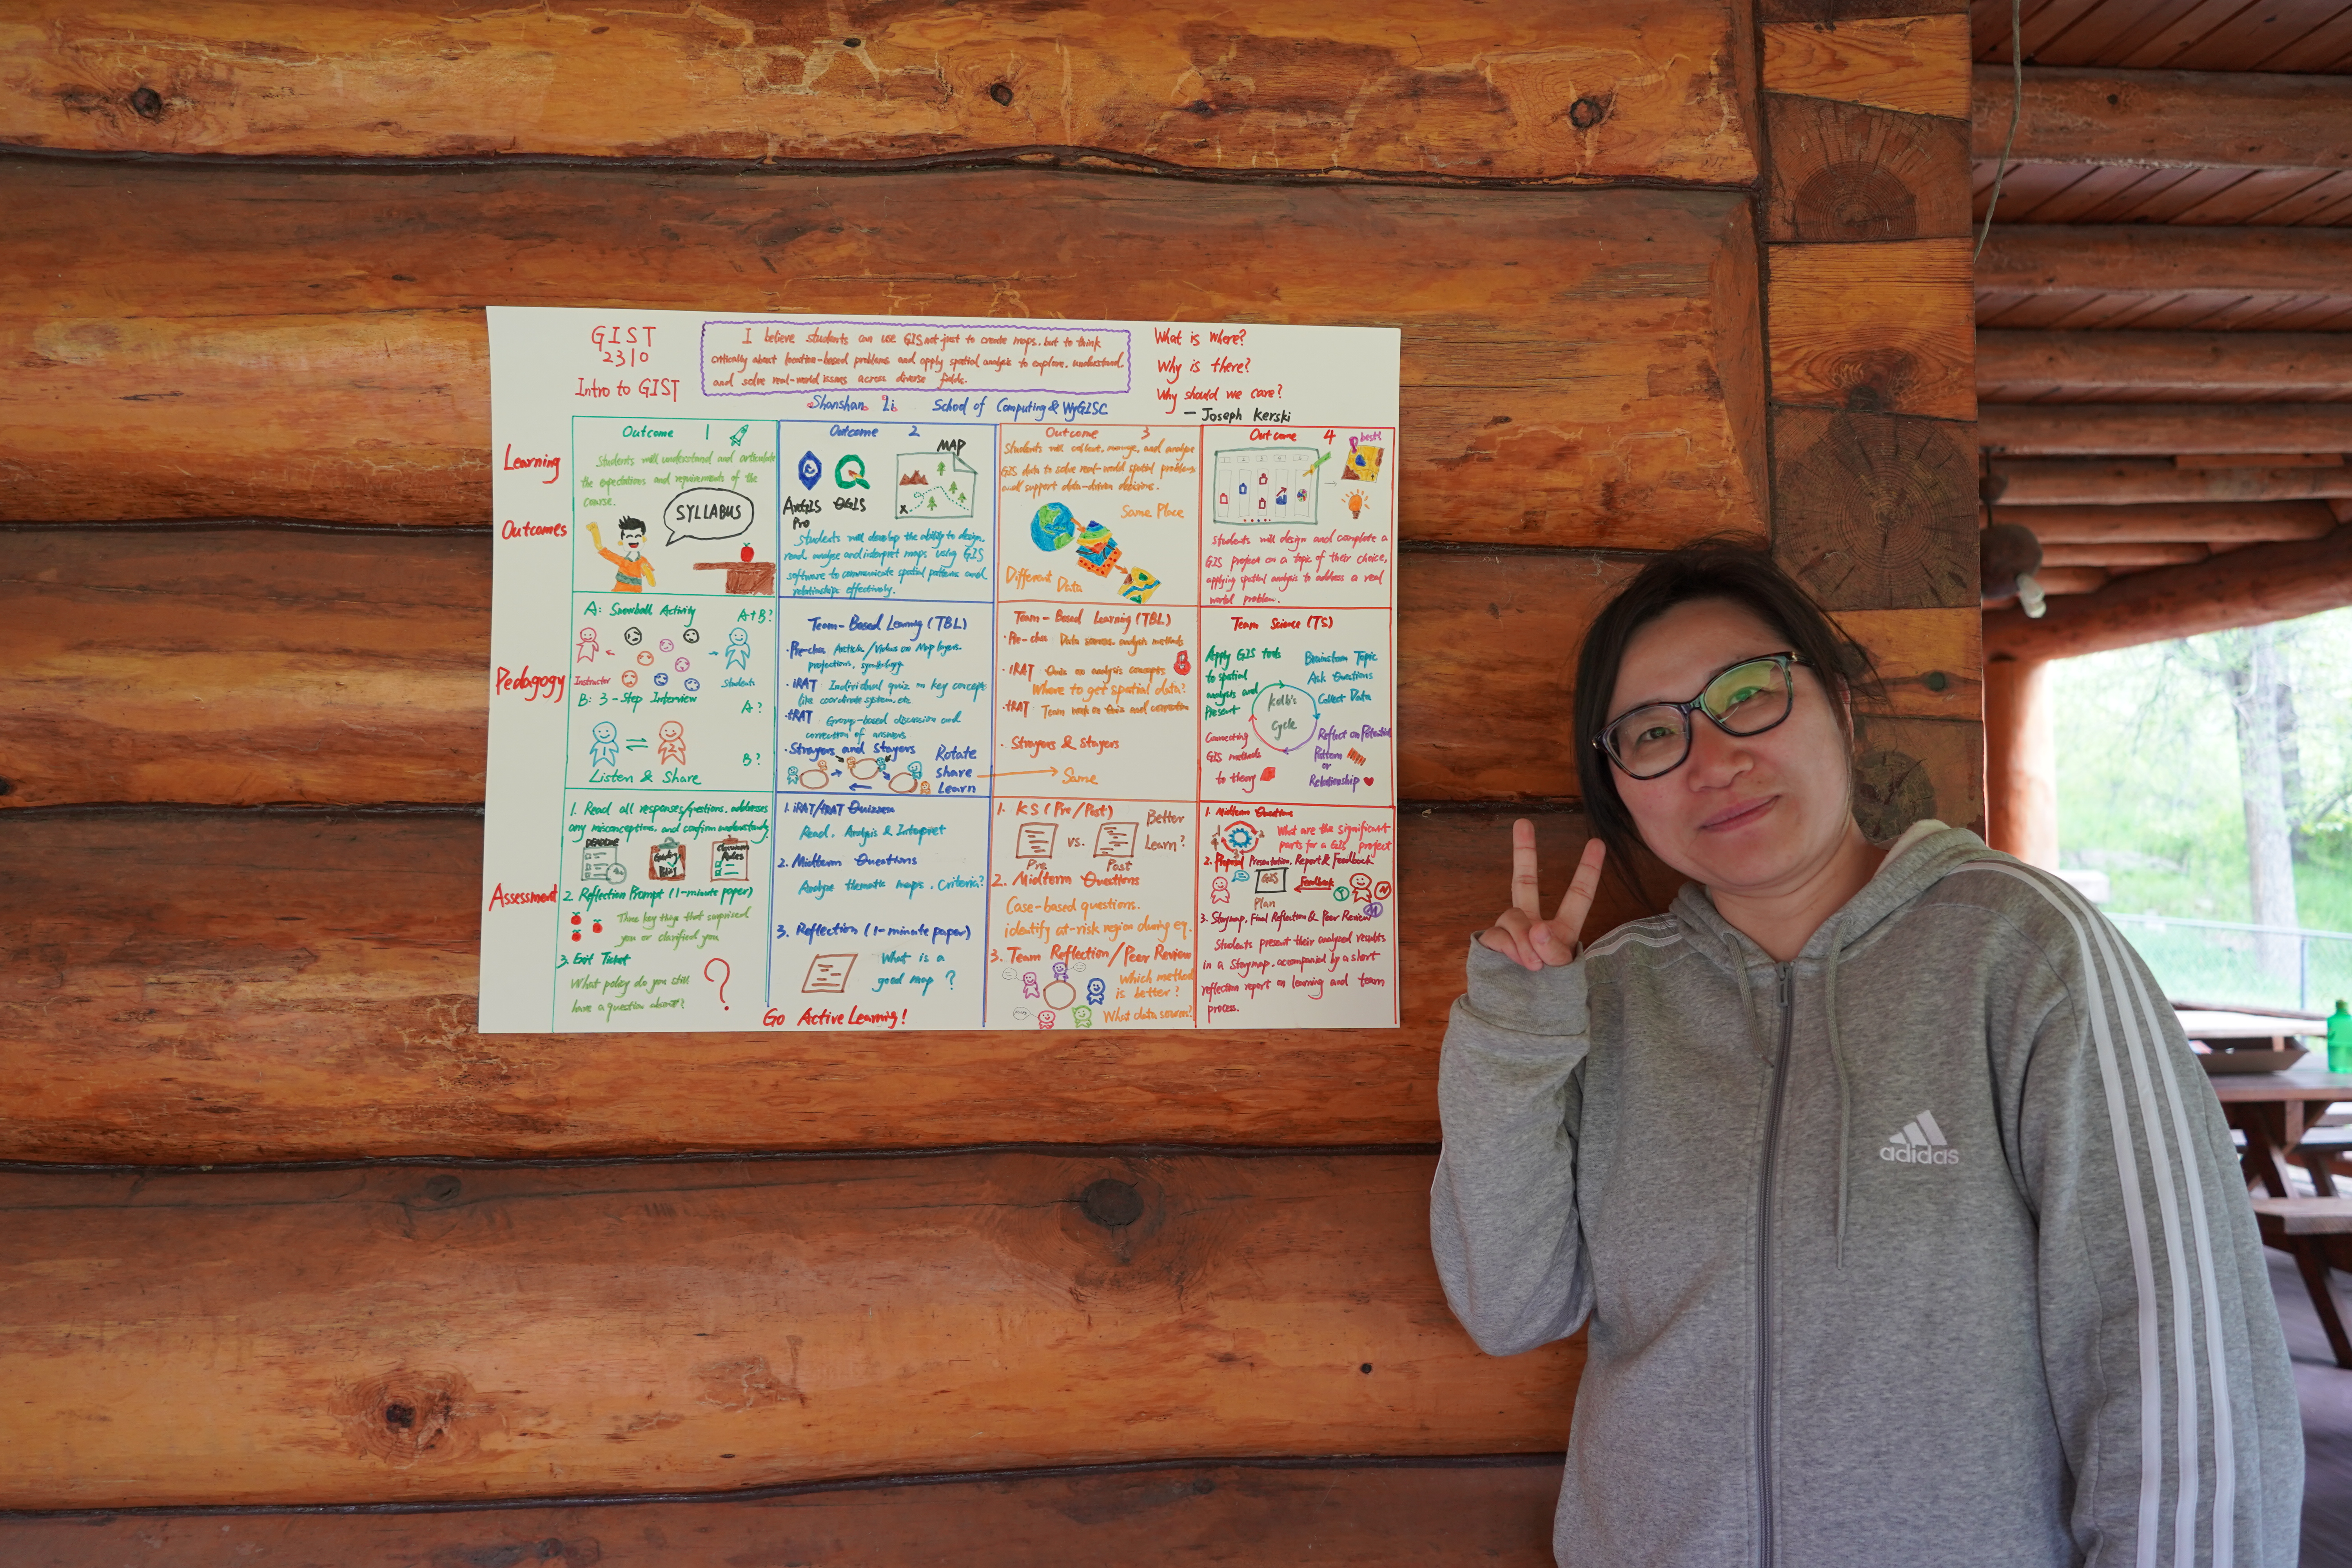 GIST
2310
Intro to GIST
I believe students can use GIS not just to create maps, but to think
critically about location-based problems and apply spatial analysis to explore, understand
and solve real-world issues across diverse fields.
Shanshan Li School of Computing & WyGISC
What is where?
Why is there?
Why should we care?
— Joseph Kerski
Learning
Outcomes
Outcome 1
Students will understand and articulate
the expectations and requirements of the
course.
SYLLABUS
Outcome 2
MAP
ArcGIS
Pro
QGIS
Students will develop the ability to design,
read, analyze and interpret maps using GIS
software to communicate spatial patterns and
relationships effectively.
Outcome 3
Students will collect, manage, and analyze
GIS data to solve real-world spatial problems
and support data-driven decisions.
Same Place
Different Data
Outcome 4
best!
Students will design and complete a
GIS project on a topic of their choice,
applying spatial analysis to address a real
world problem.
Pedagogy
A: Snowball Activity
A+B?
Instructor
Students
B: 3-Step Interview
A?
1
2
B?
Listen & Share
Team-Based Learning (TBL)
Article/Videos on Map layers
projections, symbology
iRAT Individual quiz on key concept
like coordinate system, etc
tRAT Group-based discussion and
correction of answers
Strayers and Stayers
Rotate
share
Learn
Team-Based Learning (TBL)
Data sources, analysis methods
iRAT Quiz on analysis concepts
Where to get spatial data?
tRAT Team work on Quiz and correction
Strayers & Stayers
Same
Team Science (TS)
Apply GIS tools
to spatial
analysis and
Present
Brainstorm Topic
Ask Questions
Collect Data
Kolb's
Cycle
Connecting
GIS methods
to theory
Reflect on Potential
Pattern
or
Relationship
Assessment
1. Read all responses/questions, addresses
any misconceptions, and confirm understanding.
DEADLINE
Classroom
Rules
2. Reflection Prompt (1-minute paper)
Three key things that surprised
you or clarified you
3. Exit Ticket
What policy do you still
have a question about?
?
1. iRAT/tRAT Quizzes
Read, Analysis & Interpret
2. Midterm Questions
Analyze thematic maps. Criteria?
3. Reflection (1-minute paper)
What is a
good map?
Go Active Learning!
1. KS (Pre/Post)
Pre
VS.
Post
Better
Learn?
2. Midterm Questions
Case-based questions.
identify at-risk region during eq.
3. Team Reflection/Peer Review
Which method
is better?
What data source?
1. Midterm Questions
What are the significant
parts for a GIS project
2. Proposal Presentation, Report & Feedback
GIS
Plan
Feedback
3. Storymap, Final Reflection & Peer Review
Students present their analyzed results
in a Storymap, accompanied by a short
reflection report on learning and team
process.
adidas